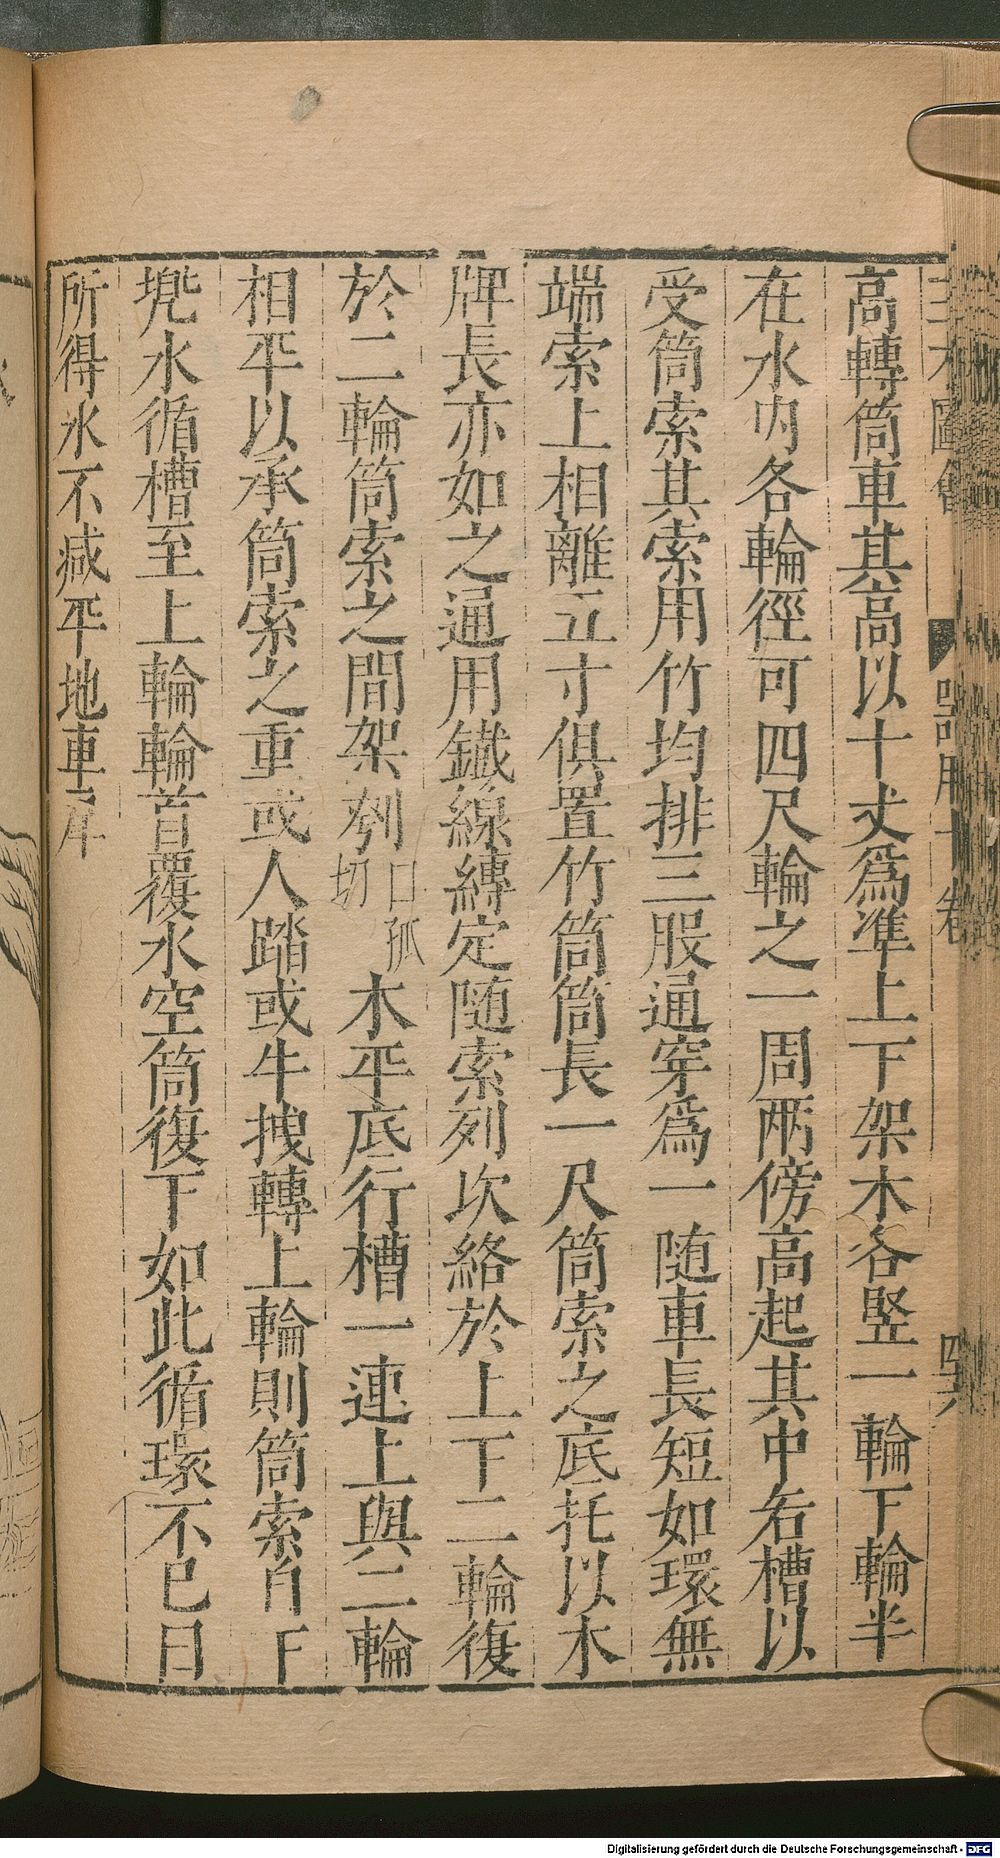 高轉筒車其高以十丈爲準上下架木各竪一輪下輪半
在水内各輪徑可四尺輪之一周兩傍高起其中若槽以
受筒索其索用竹均排三股通穿爲一随車長短如環無
端索上相離五寸俱置竹筒筒長一尺筒索之底托以木
牌長亦如之通用鐵線縳定随索列次絡於上下二輪復
於二輪筒索之間架刳
口孤
切
木平底行槽一連上與二輪
相平以承筒索之重或人踏或牛拽轉上輪則筒索自下
兠水循槽至上輪輪首覆水空筒復下如此循環不已日
所得水不减平地車戽
Digitalisierung gefördert durch die Deutsche Forschungsgemeinschaft - DFG